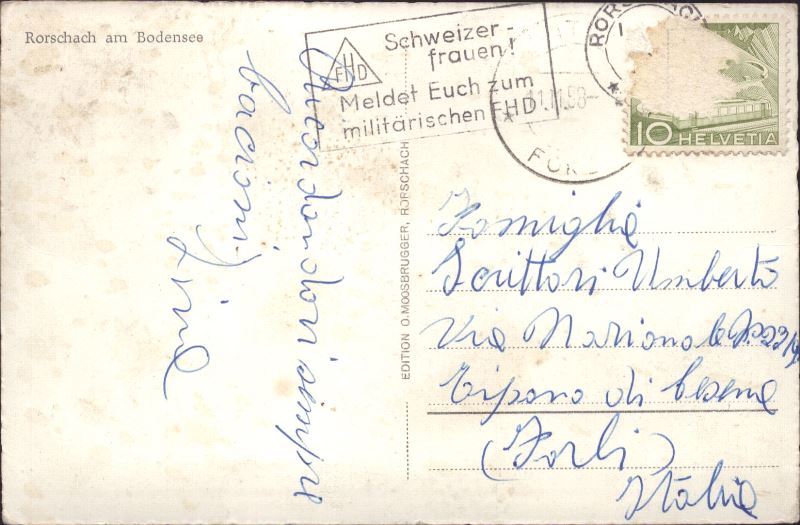 Rorschach am Bodensee
FHD
Schweizer-
frauen!
Meldet Euch zum
militärischen FHD
RORSCHACH
11.11.58-
10 HELVETIA
EDITION O. MOOSBRUGGER, RORSCHACH
Ricordandovi sempre
bacioni
Famiglia
Scrittori Umberto
Via Nazionale
Tipano di Cesena
(Forlì)
Italia